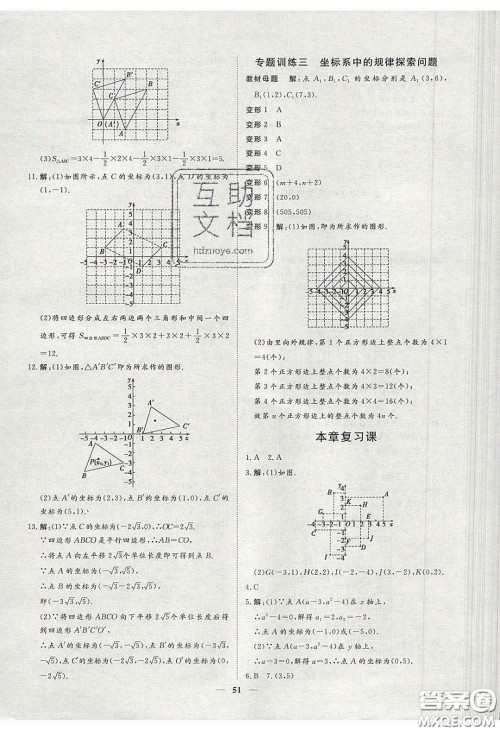 (3)S△ABC=3×4-1/2×2×4-1/2×3×1-1/2×3×1=5.
11.解:(1)如图所示,点C的坐标为(3,1),点D的坐标为
(1,-1).
(2)将四边形分成左右两边两个三角形和中间一个四
边形,可得
=12.
12.解:(1)如图,△A′B′C′即为所求作的图形.
(2)点A′的坐标为(2,3),点B′的坐标为(1,0),点C′的
坐标为(5,1).
13.解:(1)∵点C的坐标为(-2√3,0),∴OC=2√3.
∵四边形ABCO是平行四边形,∴AB=OC=2√3.
∴将点A向左平移2√3个单位长度即可得到点B.
∵点A的坐标为(-√3,√5),
∴点B的坐标为(-3√3,√5).
(2)∵将四边形ABCO向下平移2√5个单位长度后得
到四边形A′B′C′O′,
∴点A′的坐标为(-√3,-√5),点B′的坐标为
(-3√3,-√5),点C′的坐标为(-2√3,-2√5),点O′的坐标为(0,
-2√5).
专题训练三 坐标系中的规律探索问题
教材母题 解:点A₁,B₁,C₁的坐标分别是A₁(3,6),
B₁(1,2),C₁(7,3).
变形1 A
变形2 A
变形3 B
变形4 A
变形5 D
变形6 (m+4,n+2)
变形7 (20,0)
变形8 (505,505)
变形9 解:(1)如图,即为所求作的图形.
(2)由里向外规律,第1个正方形边上整点个数为4×1
=4(个);
第2个正方形边上整点个数为4×2=8(个);
第3个正方形边上整点个数为4×3=12(个);
第4个正方形边上整点个数为4×4=16(个);
故第n个正方形边上整点个数为4n个.
本章复习课
1.A 2.A
3.解:(1)如图.
(2)G(-3,1),H(2,2),I(-3,-2),J(2,-3),K(-2,2).
4.C
5.解:(1)∵点A(a-3,a²-4)在x轴上,
∴a²-4=0,解得a=±2.
∴点A的坐标为(-1,0)或(-5,0).
(2)∵点A(a-3,a²-4)在y轴上,
∴a-3=0,解得a=3.
∴点A的坐标为(0,5).
6.B 7.(3,5)
51
互助
文档
hdzuoye.com
答案圈
MXQE.COM